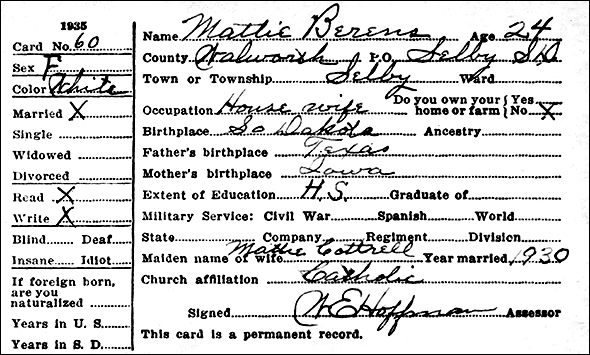 1935
Card No. 60
Sex F
Color White
Married X
Single
Widowed
Divorced
Read X
Write X
Blind Deaf
Insane Idiot
If foreign born,
are you
naturalized
Years in U. S.
Years in S. D.
Name Mattie Berens Age 24
County Walworth P.O. Selby S.D
Town or Township Selby Ward
Occupation House wife Do you own your home or farm { Yes No X
Birthplace So Dakota Ancestry
Father's birthplace Texas
Mother's birthplace Iowa
Extent of Education H.S. Graduate of
Military Service: Civil War Spanish World
State Company Regiment Division
Maiden name of wife Mattie Cottrell Year married 1930
Church affiliation Catholic
Signed W E Hoffman Assessor
This card is a permanent record.